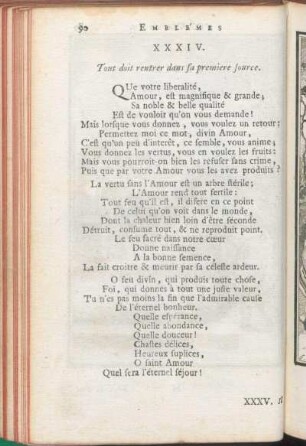 90 EMBLÊMES
XXXIV.
Tout doit rentrer dans sa premiere source.
QUe votre liberalité,
Amour, est magnifique & grande;
Sa noble & belle qualité
Est de vouloir qu'on vous demande!
Mais lorsque vous donnez, vous voulez un retour;
Permettez moi ce mot, divin Amour,
C'est qu'un peu d'interêt, ce semble, vous anime;
Vous donnez les vertus, vous en voulez les fruits:
Mais vous pourroit-on bien les refuser sans crime,
Puis que par votre Amour vous les avez produits?
La vertu sans l'Amour est un arbre stérile;
L'Amour rend tout fertile:
Tout feu qu'il est, il difere en ce point
De celui qu'on voit dans le monde,
Dont la chaleur bien loin d'être féconde
Détruit, consume tout, & ne reproduit point.
Le feu sacré dans notre cœur
Donne naissance
A la bonne semence,
La fait croitre & meurir par sa céleste ardeur.
O feu divin, qui produis toute chose,
Foi, qui donnes à tout une juste valeur,
Tu n'es pas moins la fin que l'admirable cause
De l'éternel bonheur.
Quelle espérance,
Quelle abondance,
Quelle douceur!
Chastes délices,
Heureux suplices,
O saint Amour
Quel sera l'éternel séjour!
XXXV.